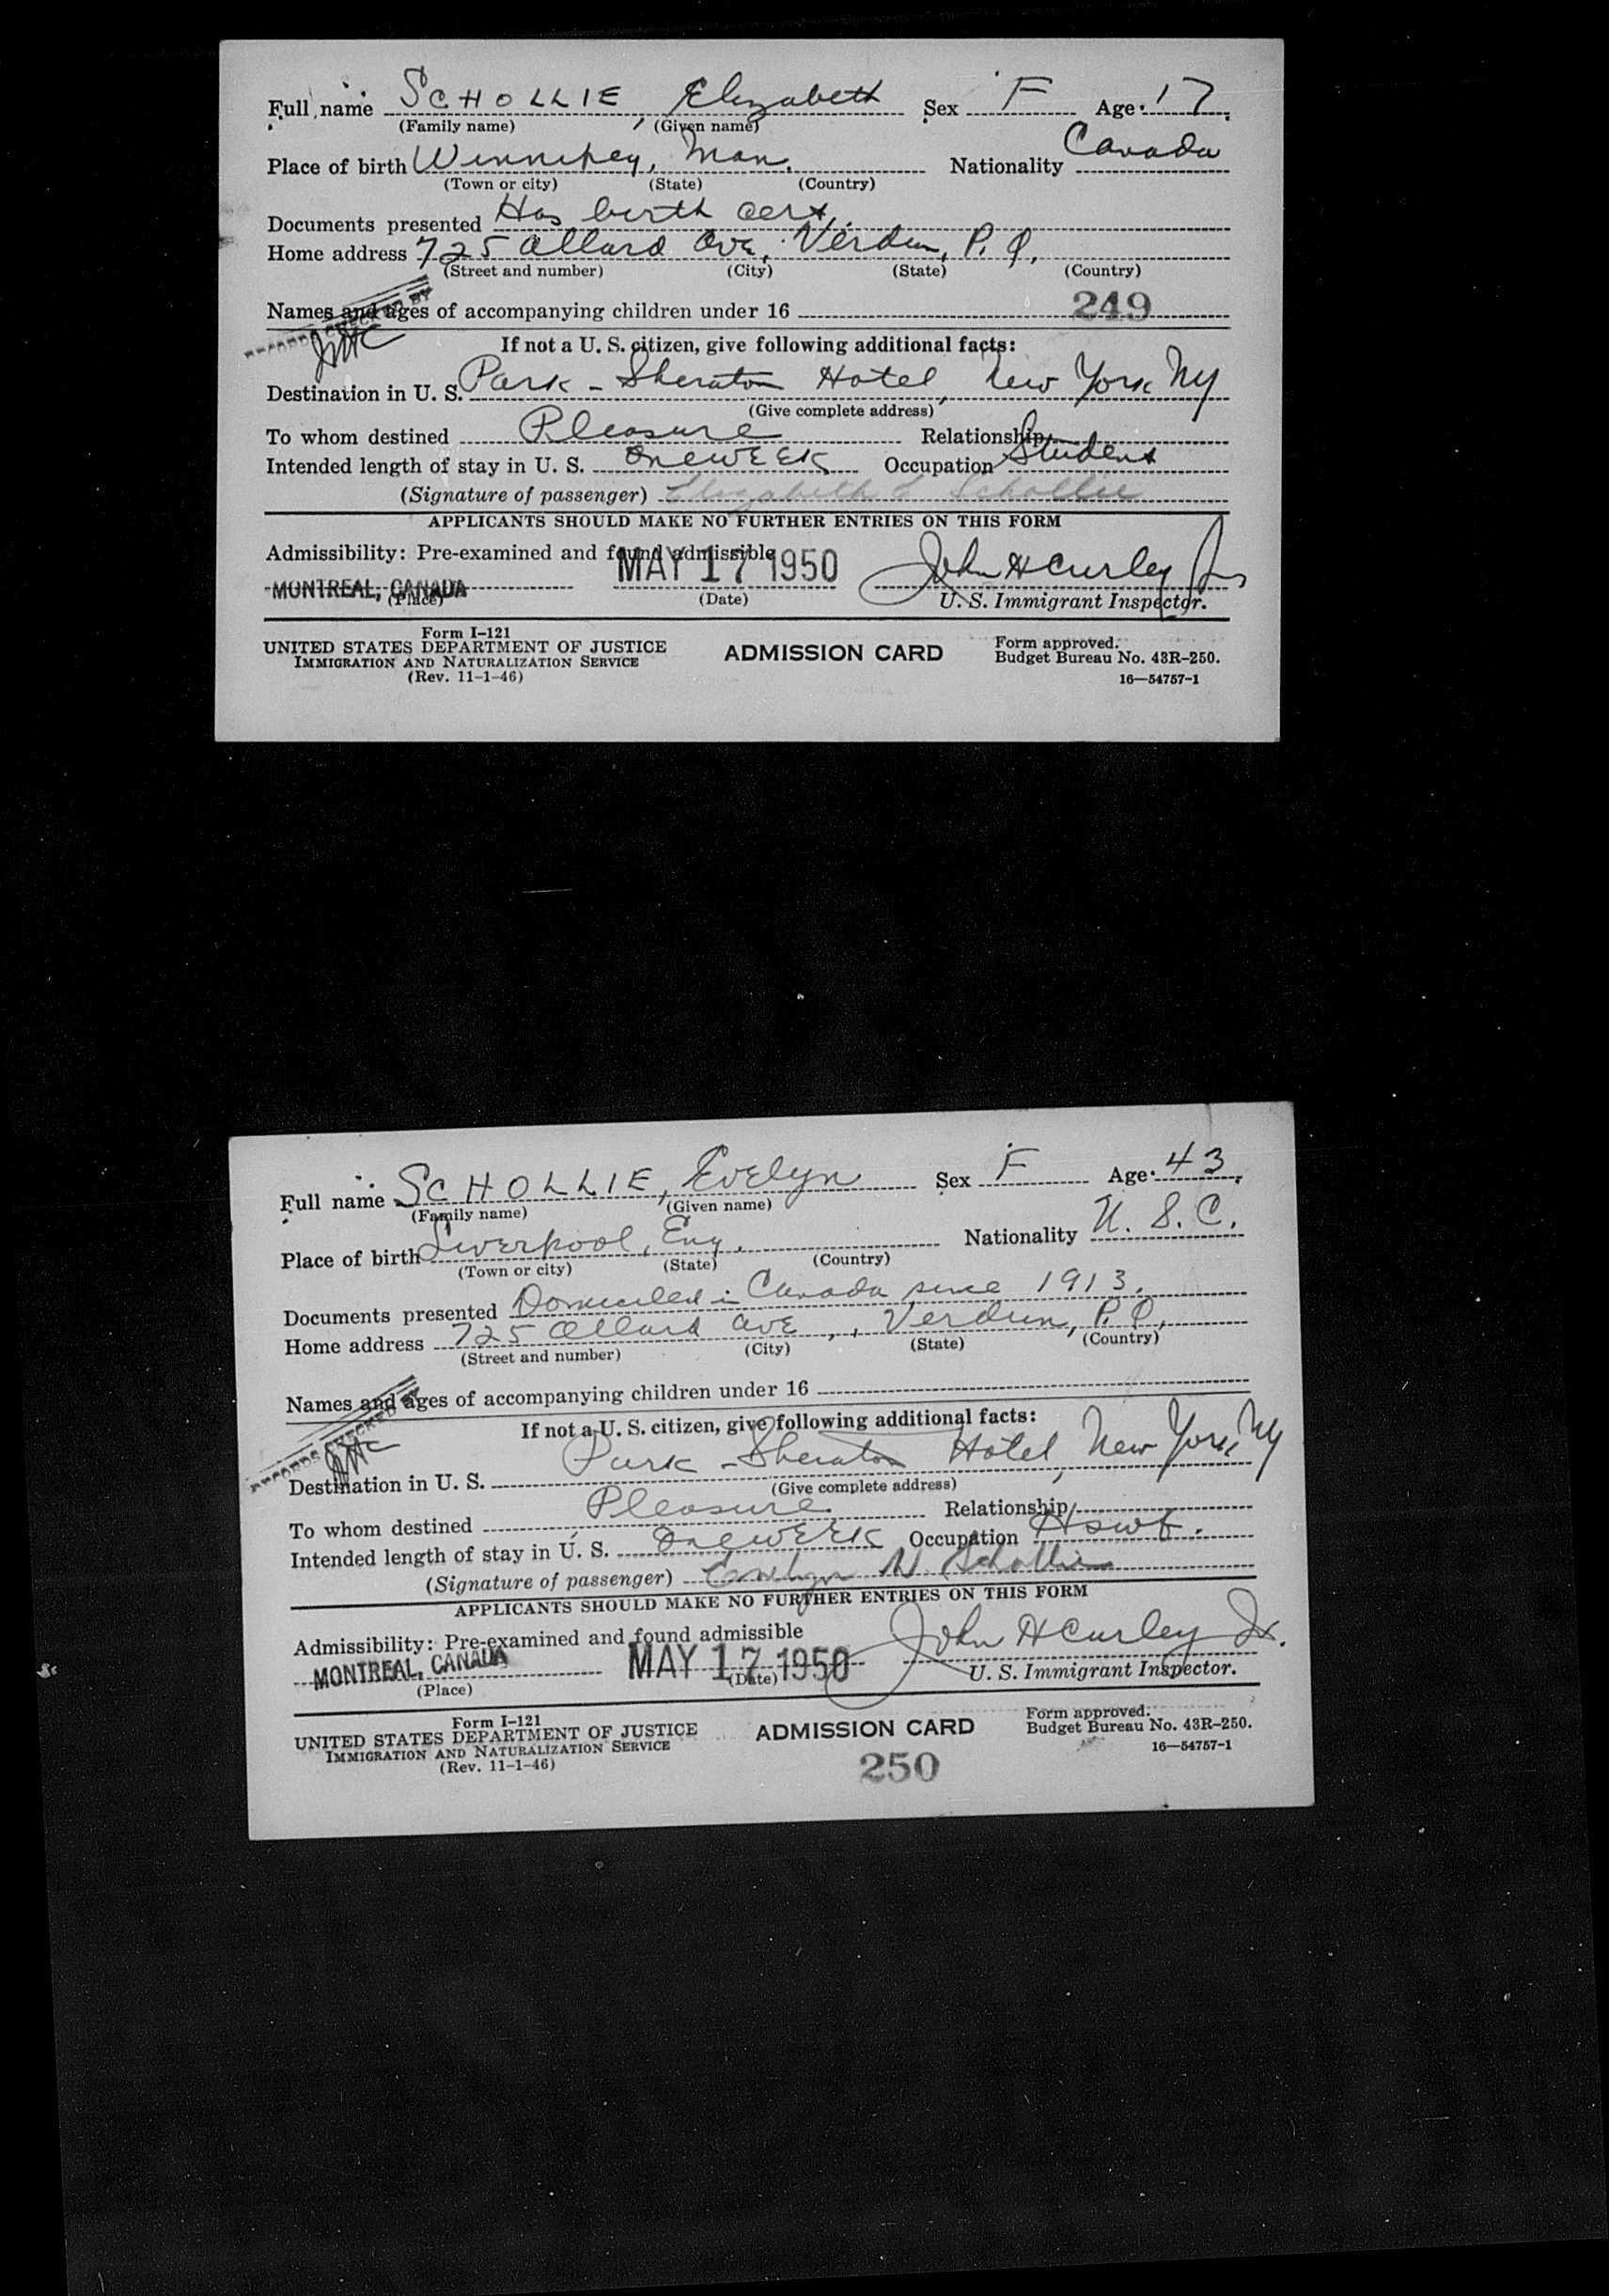 Full name SCHOLLIE, Elizabeth Sex F Age 17
(Family name) (Given name)
Place of birth Winnipeg, Man. Nationality Canada
(Town or city) (State) (Country)
Documents presented Has birth cert.
Home address 725 Allard Ave, Verdun, P. Q.
(Street and number) (City) (State) (Country)
Names and ages of accompanying children under 16 249
RECORDS CHECKED BY
If not a U. S. citizen, give following additional facts:
Destination in U. S. Park - Sheraton Hotel, New York NY
(Give complete address)
To whom destined Pleasure Relationship
Intended length of stay in U. S. One WEEK Occupation Student
(Signature of passenger) Elizabeth Schollie
APPLICANTS SHOULD MAKE NO FURTHER ENTRIES ON THIS FORM
Admissibility: Pre-examined and found admissible
MONTREAL, CANADA MAY 17 1950 John H Curley Jr
(Place) (Date) U. S. Immigrant Inspector.
Form I-121
UNITED STATES DEPARTMENT OF JUSTICE
IMMIGRATION AND NATURALIZATION SERVICE
(Rev. 11-1-46)
ADMISSION CARD
Form approved.
Budget Bureau No. 43R-250.
16—54757-1
Full name SCHOLLIE, Evelyn Sex F Age 43
(Family name) (Given name)
Place of birth Liverpool, Eng. Nationality U. S. C.
(Town or city) (State) (Country)
Documents presented Domiciled in Canada since 1913.
Home address 725 Allard AVE, Verdun, P. Q.
(Street and number) (City) (State) (Country)
Names and ages of accompanying children under 16
RECORDS CHECKED BY
If not a U. S. citizen, give following additional facts:
Destination in U. S. Park - Sheraton Hotel, New York NY
(Give complete address)
To whom destined Pleasure Relationship
Intended length of stay in U. S. One WEEK Occupation Hswf.
(Signature of passenger) Evelyn N. Schollie
APPLICANTS SHOULD MAKE NO FURTHER ENTRIES ON THIS FORM
Admissibility: Pre-examined and found admissible
MONTREAL, CANADA MAY 17 1950 John H Curley Jr.
(Place) (Date) U. S. Immigrant Inspector.
Form I-121
UNITED STATES DEPARTMENT OF JUSTICE
IMMIGRATION AND NATURALIZATION SERVICE
(Rev. 11-1-46)
ADMISSION CARD
250
Form approved.
Budget Bureau No. 43R-250.
16—54757-1